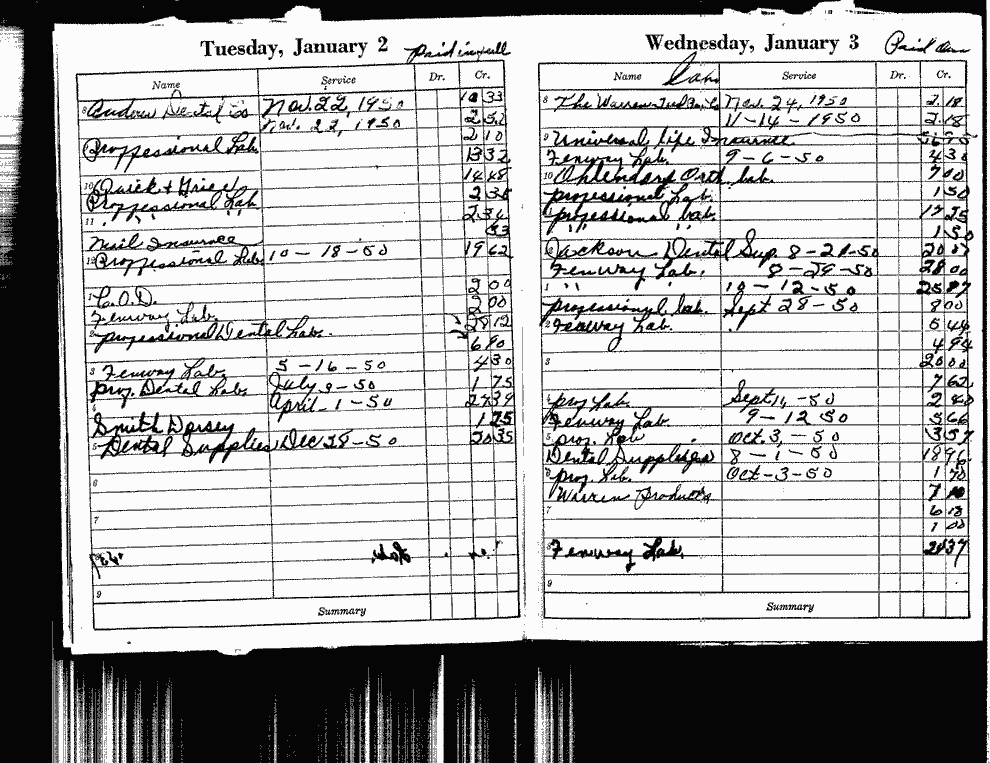 Tuesday, January 2 Paid in full
Name Service Dr. Cr.
8 Andrew Dental Co Nov. 22, 1950 10 33
Nov. 22, 1950 2.52
9 Proffessional Lab. 2 10
13 32
10 Quick + Grice 14 48
Proffessional Lab 2 38
11 " " " 2 34
Mail Insurance 83
12 Proffessional Lab. 10 - 18 - 50 19 62
1 C.O.D. 2 00
Fenway Lab. 2 00
2 professional Dental Lab. 28 12
6 80
3 Fenway Lab. 5 - 16 - 50 4 30
prof. Dental Lab. July 9 - 50 1 75
4 April - 1 - 50 24 39
Smith Dorsey 1 25
5 Dental Supplies Dec 28 - 50 20 35
6
7
Lab.
9
Summary
Wednesday, January 3 Paid
Name Service Dr. Cr.
8 The Warren Nov. 24, 1950 2.18
11 - 14 - 1950 2.18
9 Universal Life Insurance
Fenway Lab. 9 - 6 - 50 4 30
10 Orth. lab. 7 00
professional Lab. 1 50
11 professional lab. 17 25
" " 1 50
12 Jackson Dental Sup. 8 - 21 - 50 20 07
Fenway Lab. 8 - 29 - 50 28 00
1 " " 10 - 12 - 50 25 87
professional lab. Sept 28 - 50 8 00
2 Fenway Lab. 5 44
4 94
3 20 00
7 62
4 prof Lab. Sept 11, - 50 2 40
Fenway Lab 9 - 12 50 5 66
5 prof. Lab Oct. 3, - 50 3 57
Dental Supplies 8 - 1 - 50 18 96
6 prof. Lab. Oct - 3 - 50 1 70
Warren Products 7 10
7 6 18
1 00
8 Fenway Lab. 24 37
9
Summary